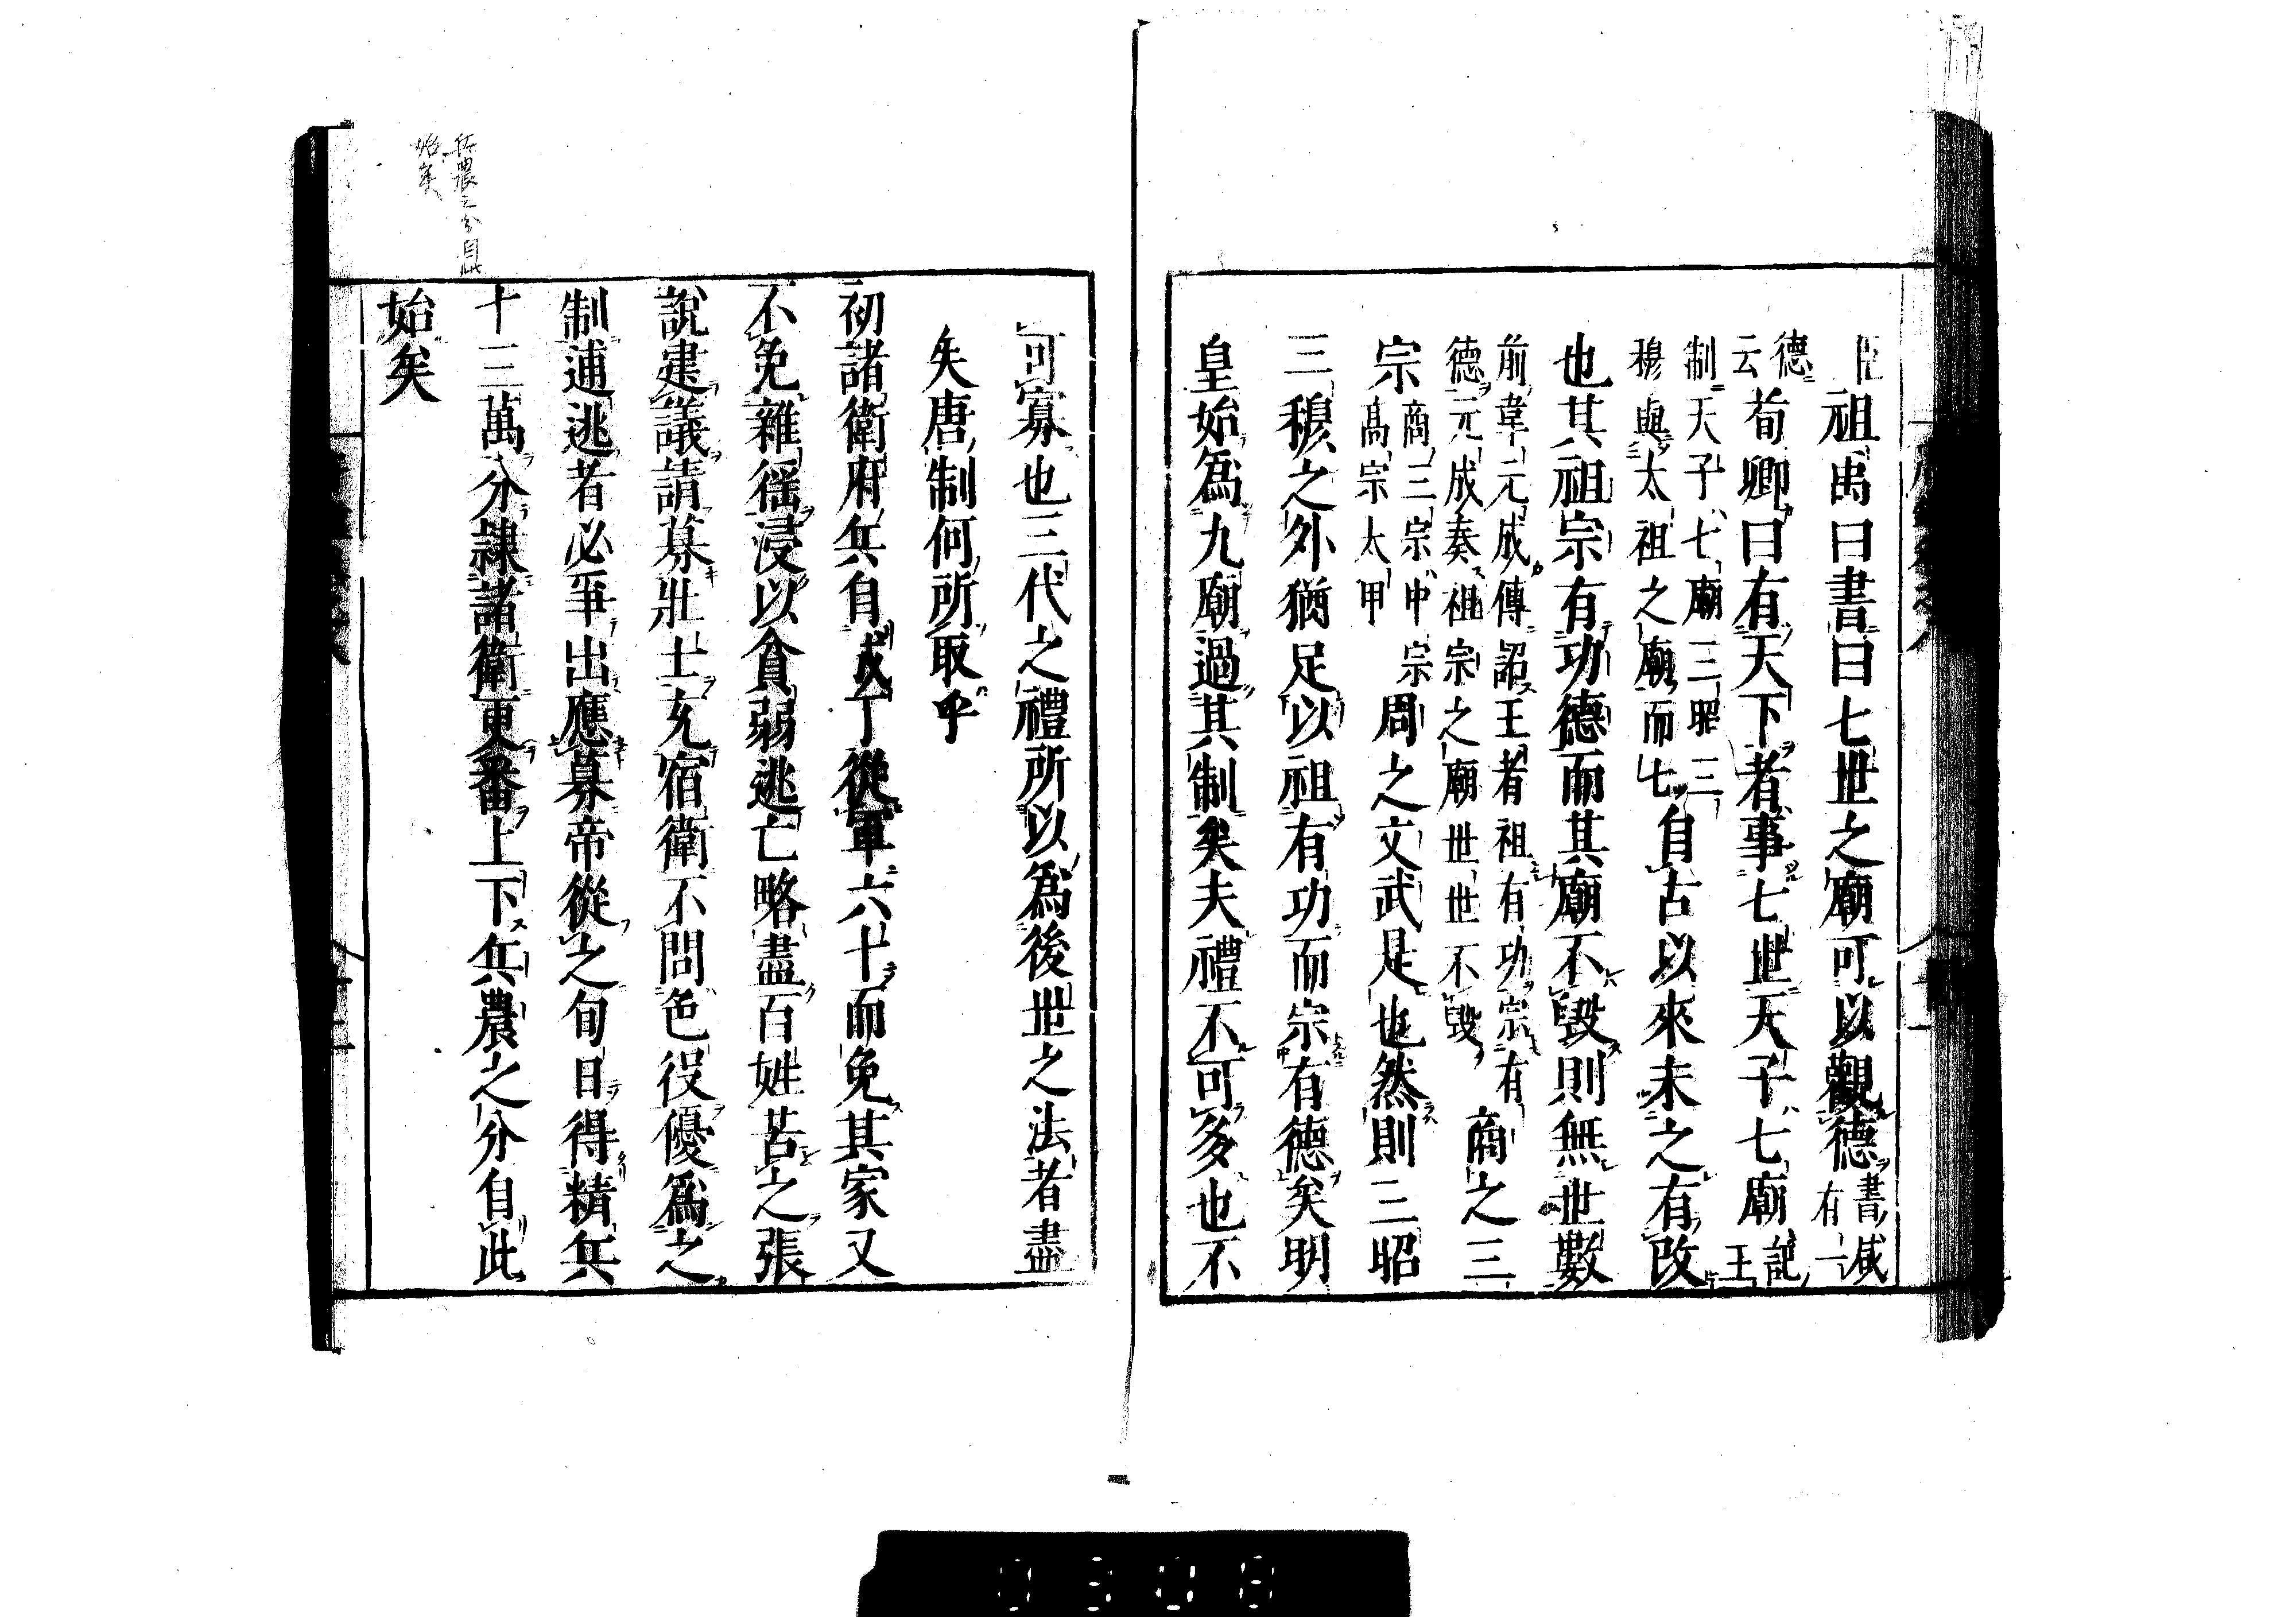 臣祖禹曰書曰七世之廟可以觀德書咸有一
德云荀卿曰有天下者事七世天子七廟記王
制天子七廟三昭三穆與太祖之廟而七自古以來未之有改
也其祖宗有功德而其廟不毀則無世數
前韋元成傳詔王者祖有功宗有德元成奏祖宗之廟世世不毀商之三
宗商三宗中宗高宗太甲周之文武是也然則三昭
三穆之外猶足以祖有功而宗有德矣明
皇始爲九廟過其制矣夫禮不可多也不
可寡也三代之禮所以爲後世之法者盡
矣唐制何所取乎
初諸衛府兵自成丁從軍六十而免其家又
不免雜徭浸以貧弱逃亡略盡百姓苦之張
說建議請募壯士充宿衛不問色役優爲之
制逋逃者必爭出應募帝從之旬日得精兵
十三萬分隷諸衛更番上下兵農之分自此
始矣
兵農之分自此
始矣
0308